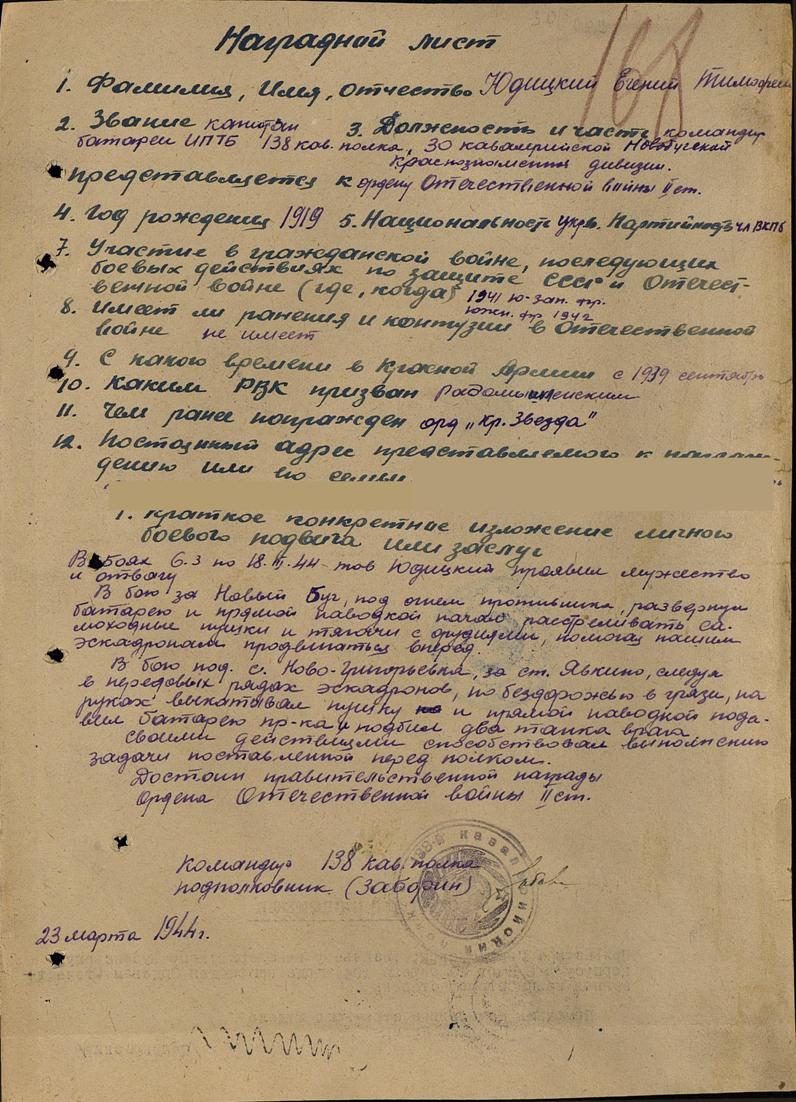 Наградной лист
168
1. Фамилия, Имя, отчество Юдицкий Евгений Тимофее
2. Звание капитан 3. Должность и часть командир
батареи ИПТБ 138 кав. полка, 30 кавалерийской Новобугской
Краснознаменной дивизии.
Представляется к ордену Отечественной войны II ст.
4. Год рождения 1919 5. Национальность укр. Партийность чл ВКПб
7. Участие в гражданской войне, последующих
боевых действиях по защите СССР и Отечест-
венной войне (где, когда) 1941 Ю-зап. фр.
Южн. фр 1942
8. Имеет ли ранения и контузии в Отечественной
войне не имеет
9. С какого времени в Красной Армии с 1939 сентябрь
10. Каким РВК призван Радомышленским
11. Чем ранее награжден орд „Кр. Звезда"
12. Постоянный адрес представляемого к награж-
дению или его семьи
1. Краткое конкретное изложение личного
боевого подвига или заслуг
В боях 6.3 по 18.III.44 тов Юдицкий проявил мужество
и отвагу
В бою за Новый Буг, под огнем противника, развернул
батарею и прямой наводкой начал расстреливать са-
моходные пушки и тягачи с орудиями, помогая нашим
эскадронам продвигаться вперед.
В бою под с. Ново-Григорьевка, за ст. Явкино, следуя
в передовых рядах эскадронов, по бездорожью в грязи, на
руках выкатывал пушку и прямой наводкой пода-
вил батарею пр-ка и подбил два танка врага
Своими действиями способствовал выполнению
задачи поставленной перед полком.
Достоин правительственной награды
Ордена Отечественной войны II ст.
Командир 138 кав. полка
подполковник (Заборин)
23 марта 1944 г.